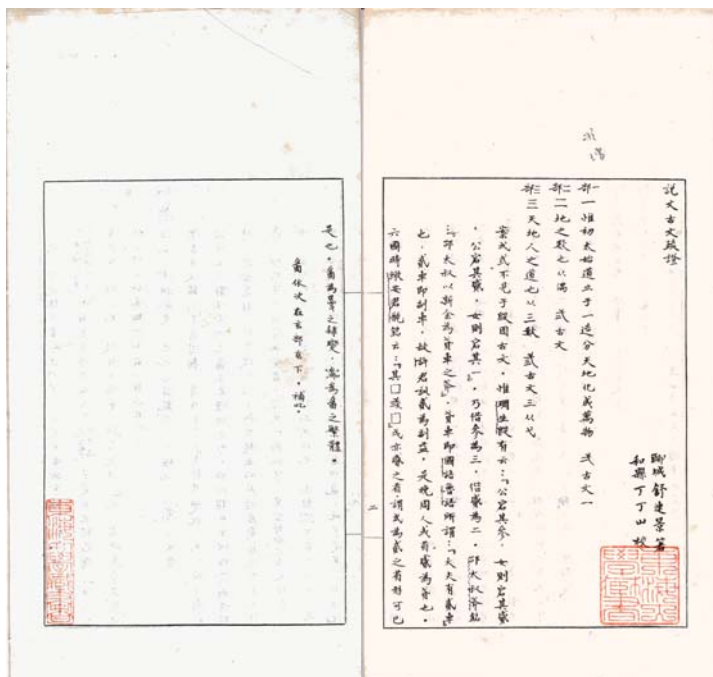 說文古文疏證
聊城舒連景著
和縣丁丁山校
部一惟初太始道立于一造分天地化成萬物 弌古文一
部二地之數也从偶 弍古文
部三天地人之道也从三數 弎古文三从弋
案弌弍不見于殷周古文，惟琱生𣪘有云：「公宕其參，女則宕其貳
，公宕其貳，女則宕其一」，乃借參為三，借貳為二，邵大叔斧銘
：「邵大叔以新金為貣車之斧」，貣車即國語魯語所謂：「大夫有貳車」
也，貳車即副車，故許君訓貳為副益，是晚周人或省貳為貣也。
六國時 安君鈚銘云：「其□弍□」弍亦貳之省，謂弍為貳之省形可已
二
是也，
香依次在玄部玄下，補此。
東海大學藏書